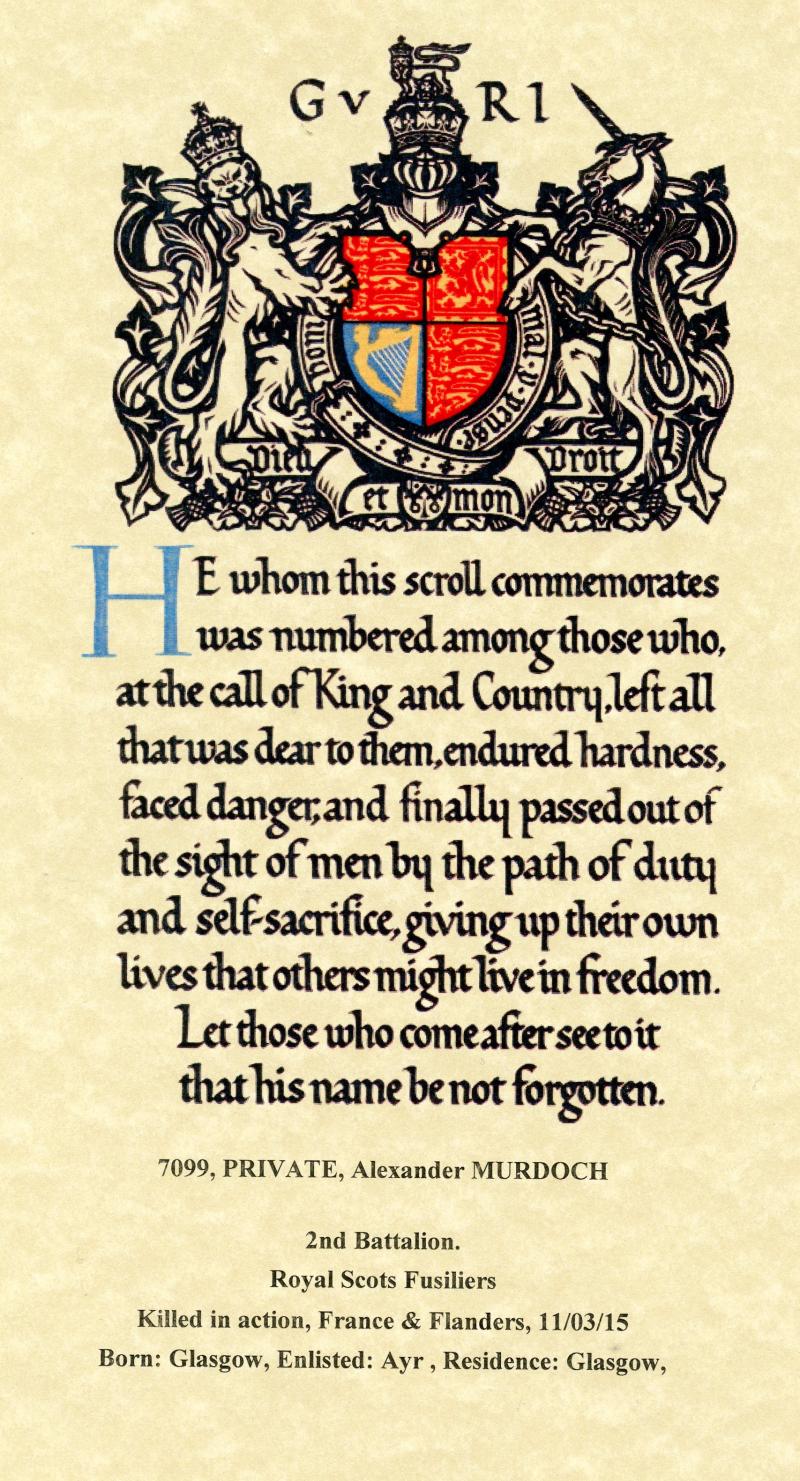 G V R I
hom mal y pense
Dieu Droit
et mon
HE whom this scroll commemorates
was numbered among those who,
at the call of King and Country, left all
that was dear to them, endured hardness,
faced danger, and finally passed out of
the sight of men by the path of duty
and self-sacrifice, giving up their own
lives that others might live in freedom.
Let those who come after see to it
that his name be not forgotten.
7099, PRIVATE, Alexander MURDOCH
2nd Battalion.
Royal Scots Fusiliers
Killed in action, France & Flanders, 11/03/15
Born: Glasgow, Enlisted: Ayr , Residence: Glasgow,